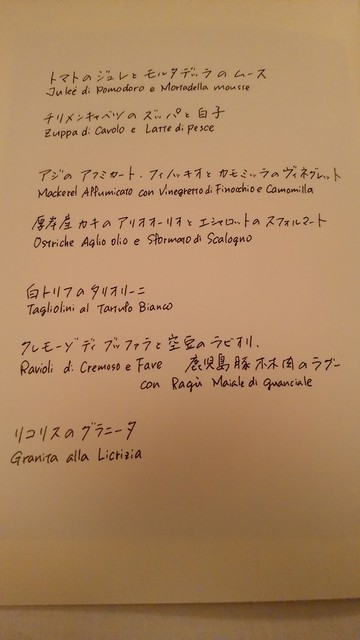 トマトのジュレとモルタデッラのムース
Juleé di Pomodoro e Mortadella mousse
チリメンキャベツのズッパと白子
Zuppa di Cavolo e Latte di pesce
アジのアフミカート、フィノッキオとカモミッラのヴィネグレット
Mackerel Affumicato con Vinegretto di Finocchio e Camomilla
厚岸産カキのアリオオーリオとエシャロットのスフォルマート
Ostriche Aglio olio e Sformato di Scalogno
白トリフのタリオリーニ
Tagliolini al Tartufo Bianco
クレモーゾディブッファラと空豆のラビオリ、
鹿児島豚ホホ肉のラグー
Ravioli di Cremoso e Fave
con Ragù Maiale di guanciale
リコリスのグラニータ
Granita alla Licrizia